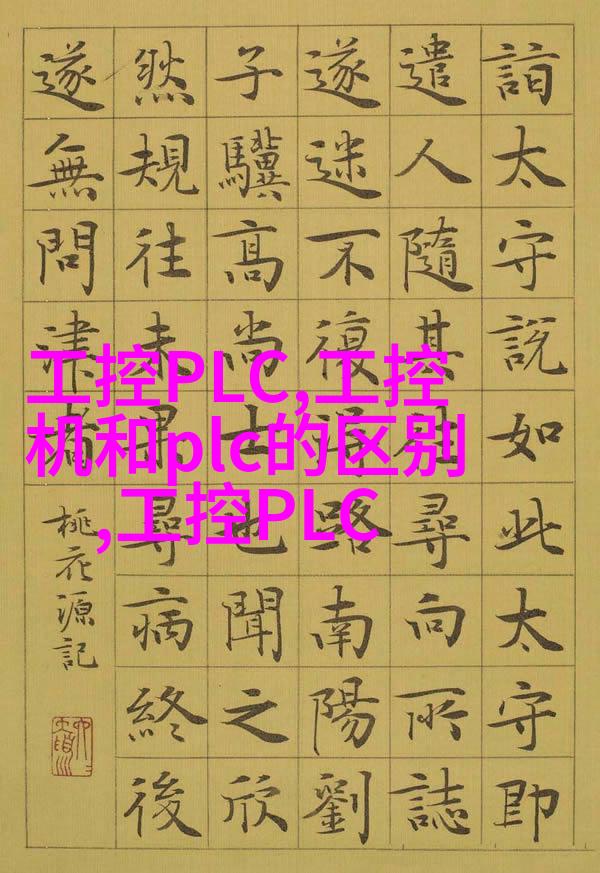 工控PLC,工控
机和plc的区别
,工控PLC
詣太守說如此太守即
遣人隨其往尋向所誌
遂迷不復得路南陽劉
子驥高尚士也聞之欣
然規往未果尋病終後
遂無問津者
桃花源記